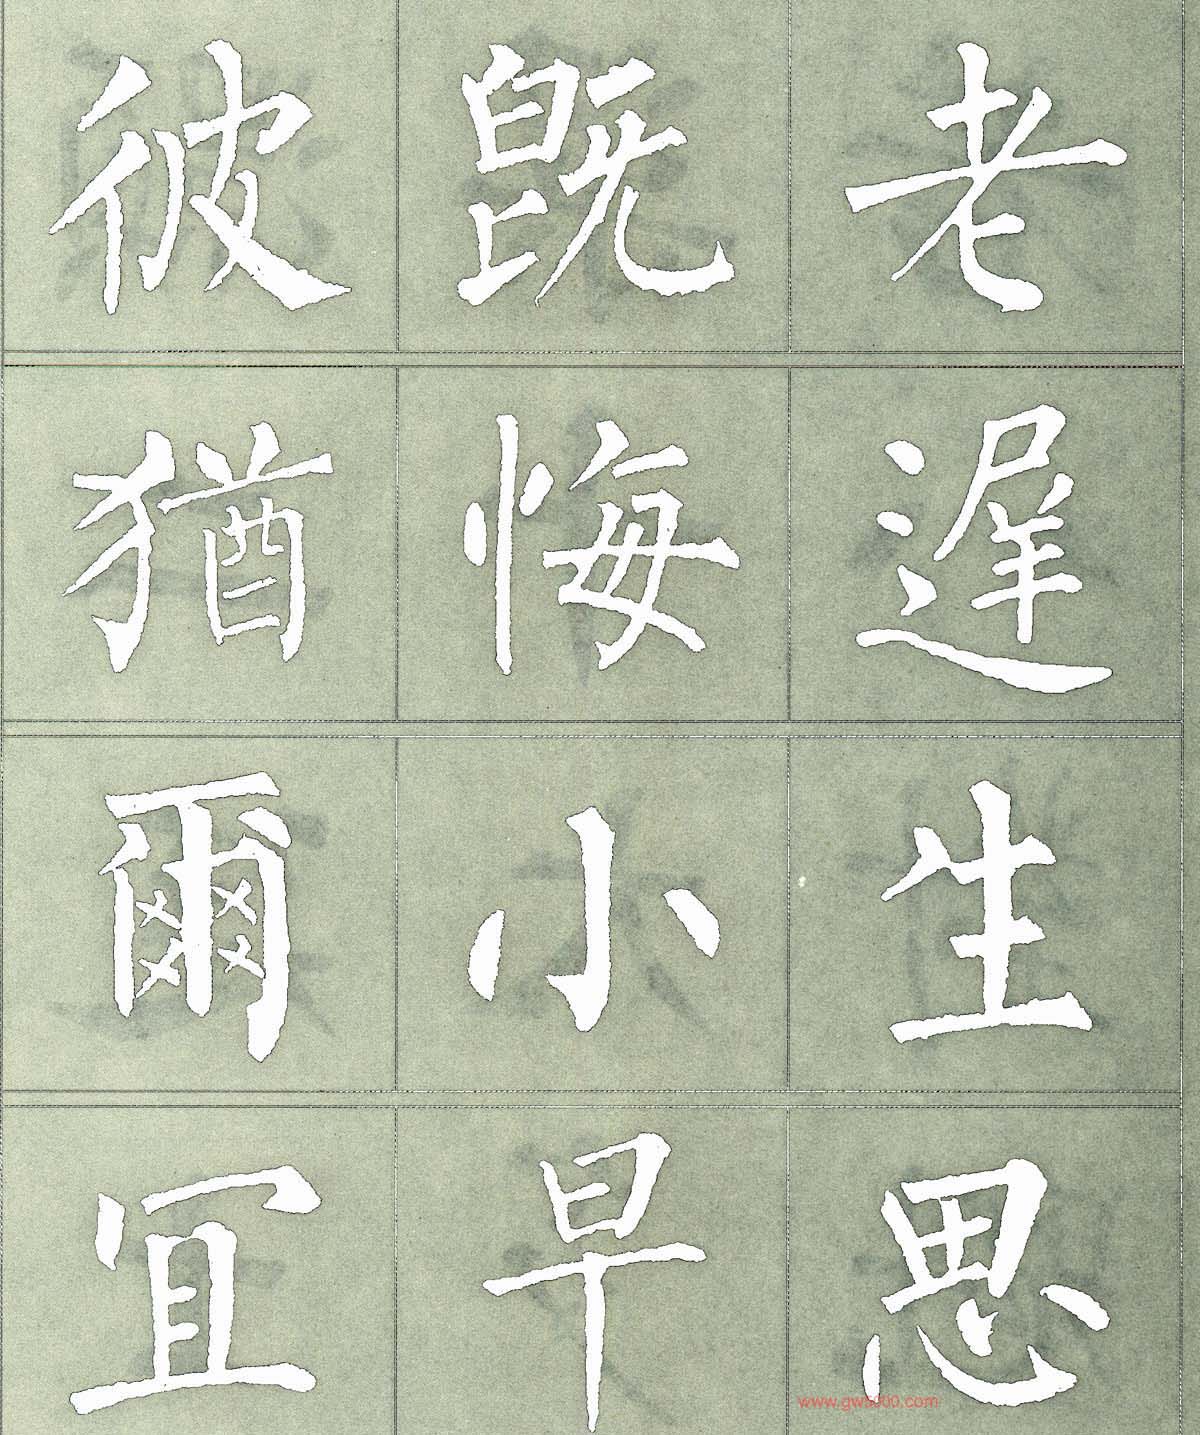 彼既老
猶悔遅
爾小生
冝早思
www.gw5000.com